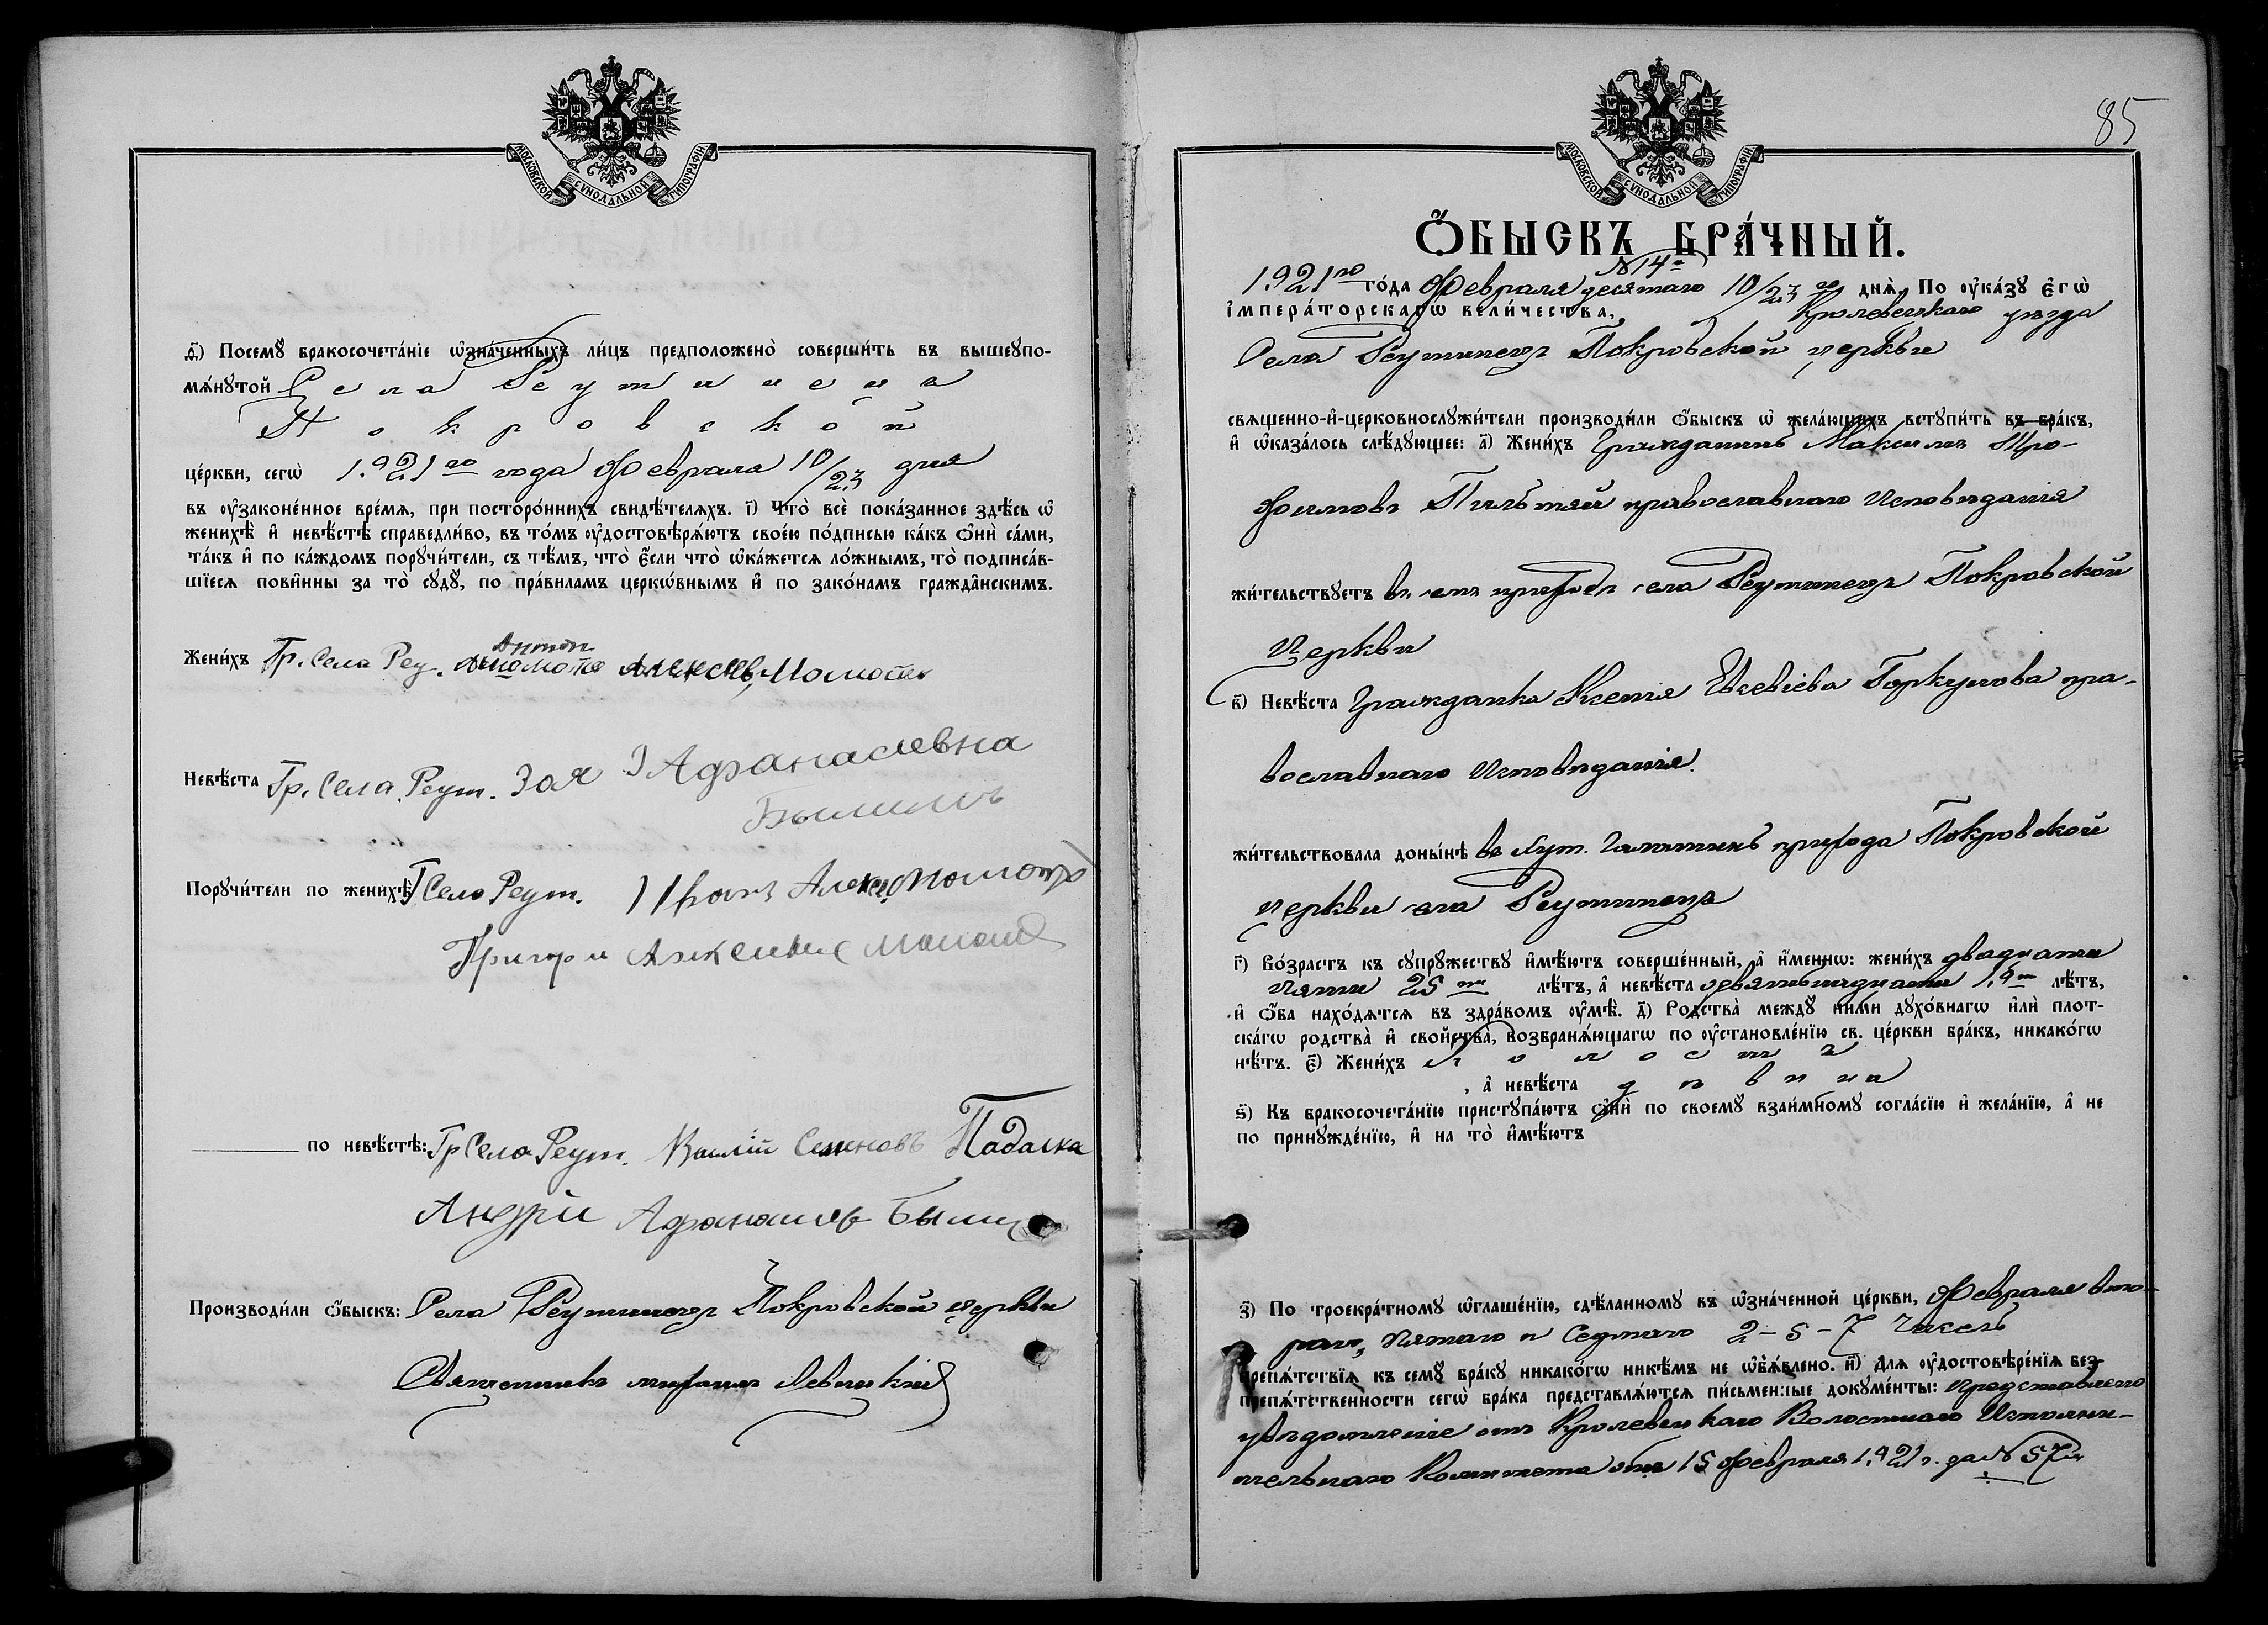 МОСКОВСКОЙ СѴНОДАЛЬНОЙ ТИПОГРАФІИ
ѳ҃) Посемꙋ̀ бракосочета́нїе ѡ҆зна́ченныхъ ли́цъ предположено̀ соверши́ть въ вышеꙋпо-
мѧ́нꙋтой Села Реутинецъ
Покровской
це́ркви, сегѡ̀ 1921го года Февраля 10/23 дня
въ ᲂу҆зако́ненное вре́мѧ, при посторо́ннихъ свидѣ́телѧхъ. і҃) Что̀ всѐ пока́занное здѣ́сь ѡ҆
женихѣ̀ и҆ невѣ́стѣ справедли́во, въ то́мъ ᲂу҆достовѣрѧ́ютъ свое́ю по́дписью ка́къ ѻ҆нѝ са́ми,
та́къ и҆ по ка́ждомъ порꙋчи́тели, съ тѣ́мъ, что̀ є҆́сли что̀ ѡ҆ка́жетсѧ ло́жнымъ, то̀ подписа́в-
шїесѧ пови́нны за то̀ сꙋдꙋ̀, по пра́виламъ церкѡ́внымъ и҆ по зако́намъ гражда̂нскимъ.
Жени́хъ Гр. Села Реу. Антон Алексѣев Момотъ
Невѣ́ста Гр. Села Реут. Зоя Афанасиевна
Былимъ
Порꙋчи́тели по женихѣ̀ Г Село Реут. Иванъ Алексе Момотъ
Григори Алксеивич Момот
по невѣ́стѣ: Гр Село Реут. Василій Семеновъ Падалка
Андрій Афанасиев Былим
Производи́ли ѻ҆́быскъ: Села Реутинецъ Покровской церкви
Священникъ Михаилъ Левицкій
85
МОСКОВСКОЙ СѴНОДАЛЬНОЙ ТИПОГРАФІИ
Ѻ҆́БЫСКЪ БРА́ЧНЫЙ.
№ 14й
1921го го́да Февраля десятаго 10/23го днѧ̀. По ᲂу҆ка́зꙋ є҆гѡ̀
і҆мпера́торскагѡ вели́чества, Кролевецкаго уезда
Села Реутинецъ Покровской церкви
свѧще́нно-и҆-церковнослꙋжи́тели производи́ли ѻ҆́быскъ ѡ҆ жела́ющихъ встꙋпи́ть въ бра́къ,
и҆ ѡ҆каза́лось слѣ́дꙋющее: а҃) Жени́хъ Гражданинъ Максимъ Тро-
фимовъ Пильтяй православнаго исповѣданія
жи́тельствꙋетъ въ семъ приходѣ села Реутинецъ Покровской
Церкви
в҃) Невѣ́ста Гражданка Ксенія Евсевіева Горкунова пра-
вославнаго Исповѣданія.
жи́тельствовала доны́нѣ въ хут. прихода Покровской
церкви села Реутинецъ
г҃) Во́зрастъ къ сꙋпрꙋ́жествꙋ и҆мѣ́ютъ соверше́нный, а҆ и҆́меннѡ: жени́хъ двадцати
пяти 25ти лѣ́тъ, а҆ невѣ́ста девятнадцати 19ти лѣ́тъ,
и҆ ѻ҆́ба нахо́дѧтсѧ въ здра́вомъ ᲂу҆мѣ̀. д҃) Родства̀ междꙋ̀ ни́ми дꙋхо́внагѡ и҆лѝ плот-
ска́гѡ родства̀ и҆ свойства̀, возбранѧ́ющагѡ по ᲂу҆становле́нїю св. це́ркви бра́къ, никако́гѡ
нѣ́тъ. є҃) Жени́хъ холостъ
, а҆ невѣ́ста дѣвица
ѕ҃) Къ бракосочета́нїю пристꙋпа́ютъ ѻ҆нѝ по своемꙋ̀ взаи́мномꙋ согла́сїю и҆ жела́нїю, а҆ не
по принꙋжде́нїю, и҆ на то̀ и҆мѣ́ютъ
з҃) По троекра́тномꙋ ѡ҆глаше́нїю, сдѣ́ланномꙋ въ ѡ҆зна́ченной це́ркви, Февраля вто-
раго, пятаго и седмаго 2-5-7 чиселъ
препѧ́тствїѧ къ семꙋ̀ бра́кꙋ никако́гѡ никѣ́мъ не ѡ҆б̾ѧ́влено. и҃) Длѧ ᲂу҆достовѣре́нїѧ без-
препѧ́тственности сегѡ̀ бра́ка представлѧ́ютсѧ пи́сьменные докꙋме́нты: представлено
увѣдомленіе отъ Кролевецкаго Волостнаго Исполни-
тельнаго Комитета отъ 15 февраля 1921 г. за № 57м